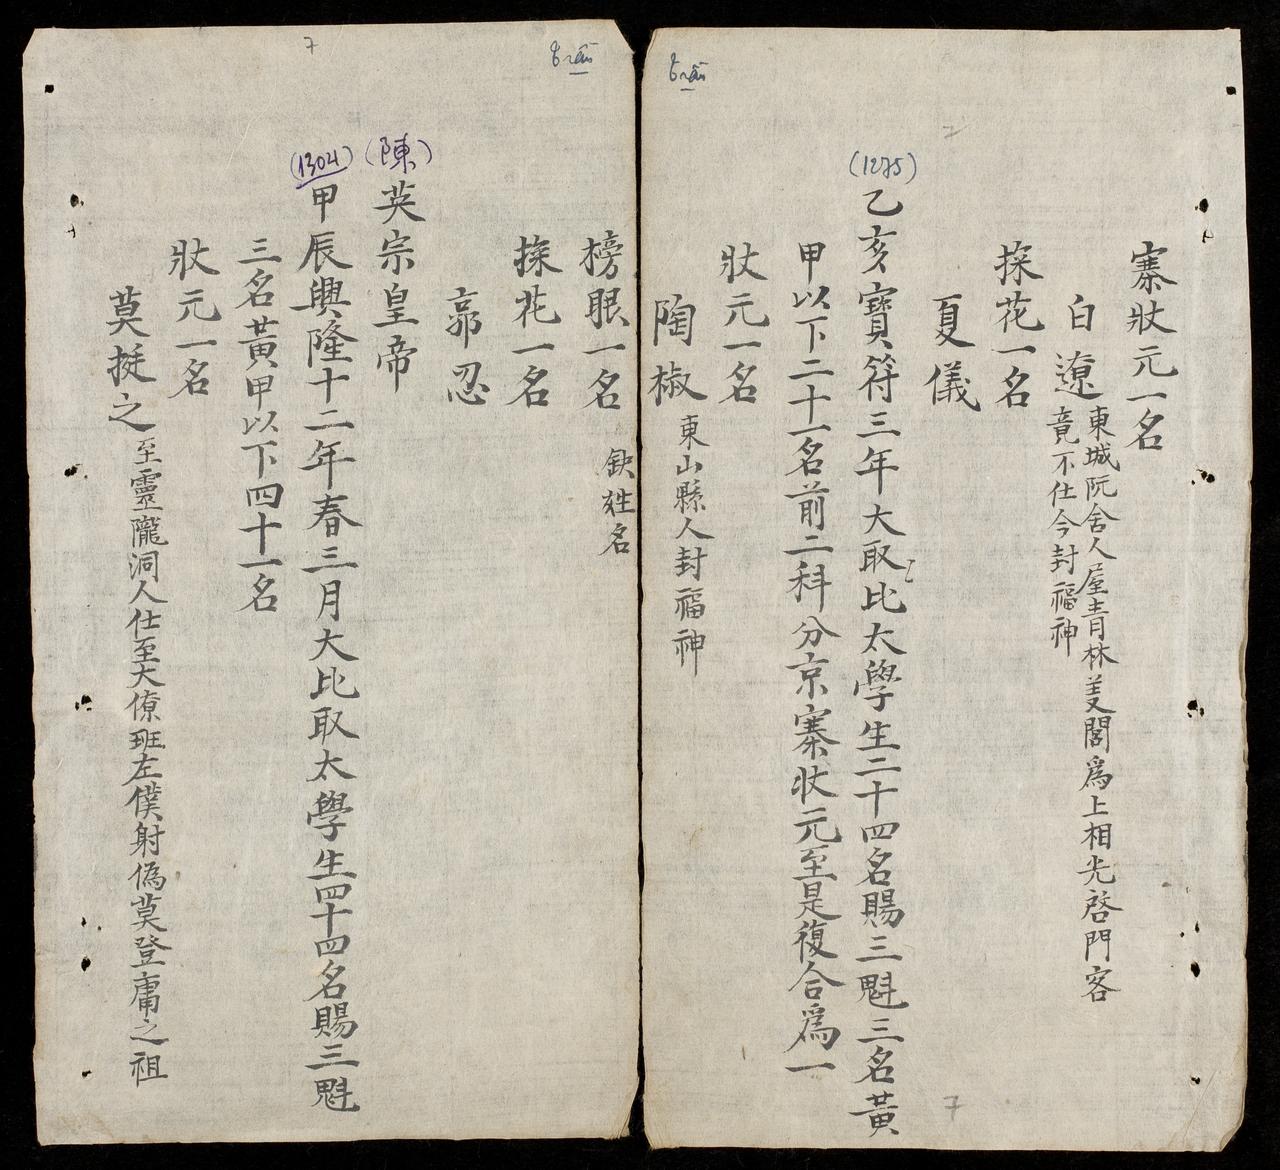 Trần
寨狀元一名
白遼 東城阮舍人屋青林羙閣爲上相光啓門客
竟不仕今封福神
探花一名
夏儀
(1275)
乙亥寶符三年大取比太學生二十四名賜三魁三名黃
甲以下二十一名前二科分京寨狀元至是復合爲一
狀元一名
陶椒 東山縣人封福神
Trần
7
榜眼一名 缺姓名
探花一名
郭忍
(陳)
英宗皇帝
(1304)
甲辰興隆十二年春三月大比取太學生四十四名賜三魁
三名黃甲以下四十一名
狀元一名
莫挺之 至靈隴洞人仕至大僚班左僕射偽莫登庸之祖
7